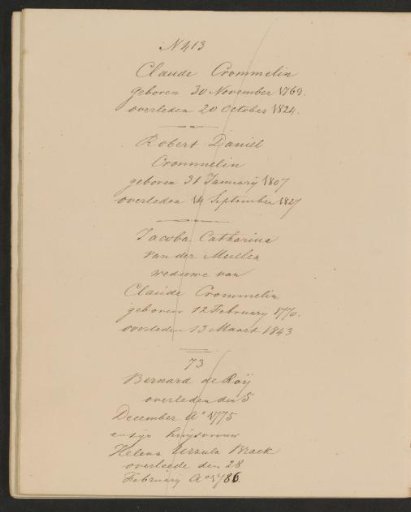 N 413
Claude Crommelin
geboren 30 November 1769.
overleden 20 October 1824.
Robert Daniel
Crommelin
geboren 31 January 1807
overleden 14 September 1827
Jacoba Catharina
van der Meulen
weduwe van
Claude Crommelin
geboren 12 February 1770.
overleden 13 Maart 1843
73
Bernard de Roÿ
overleden den 5
December Aº 1775
en zyn huysvrouw
Helena Ursula Brack
overleede den 28
February Aº 1786